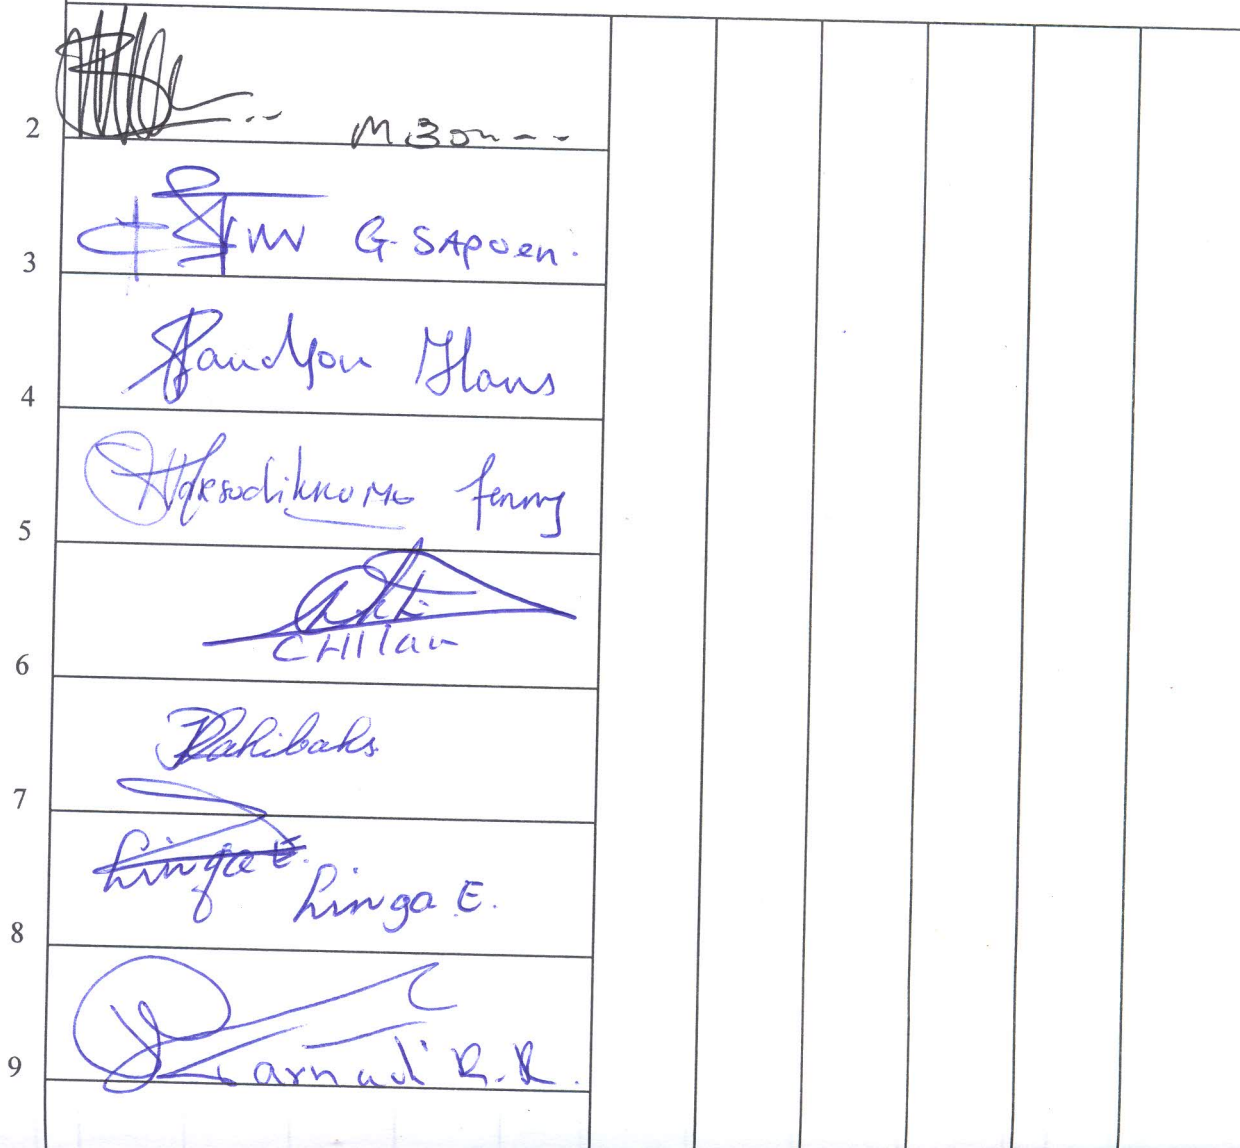 2 M Bon---
3 G. SApoen.
4 Sandjon Hans
5 Warsodikromo fenny
6 CHIlau
7 Rahibaks
Linga E.
8 Linga E.
9 Karnadi R.R.